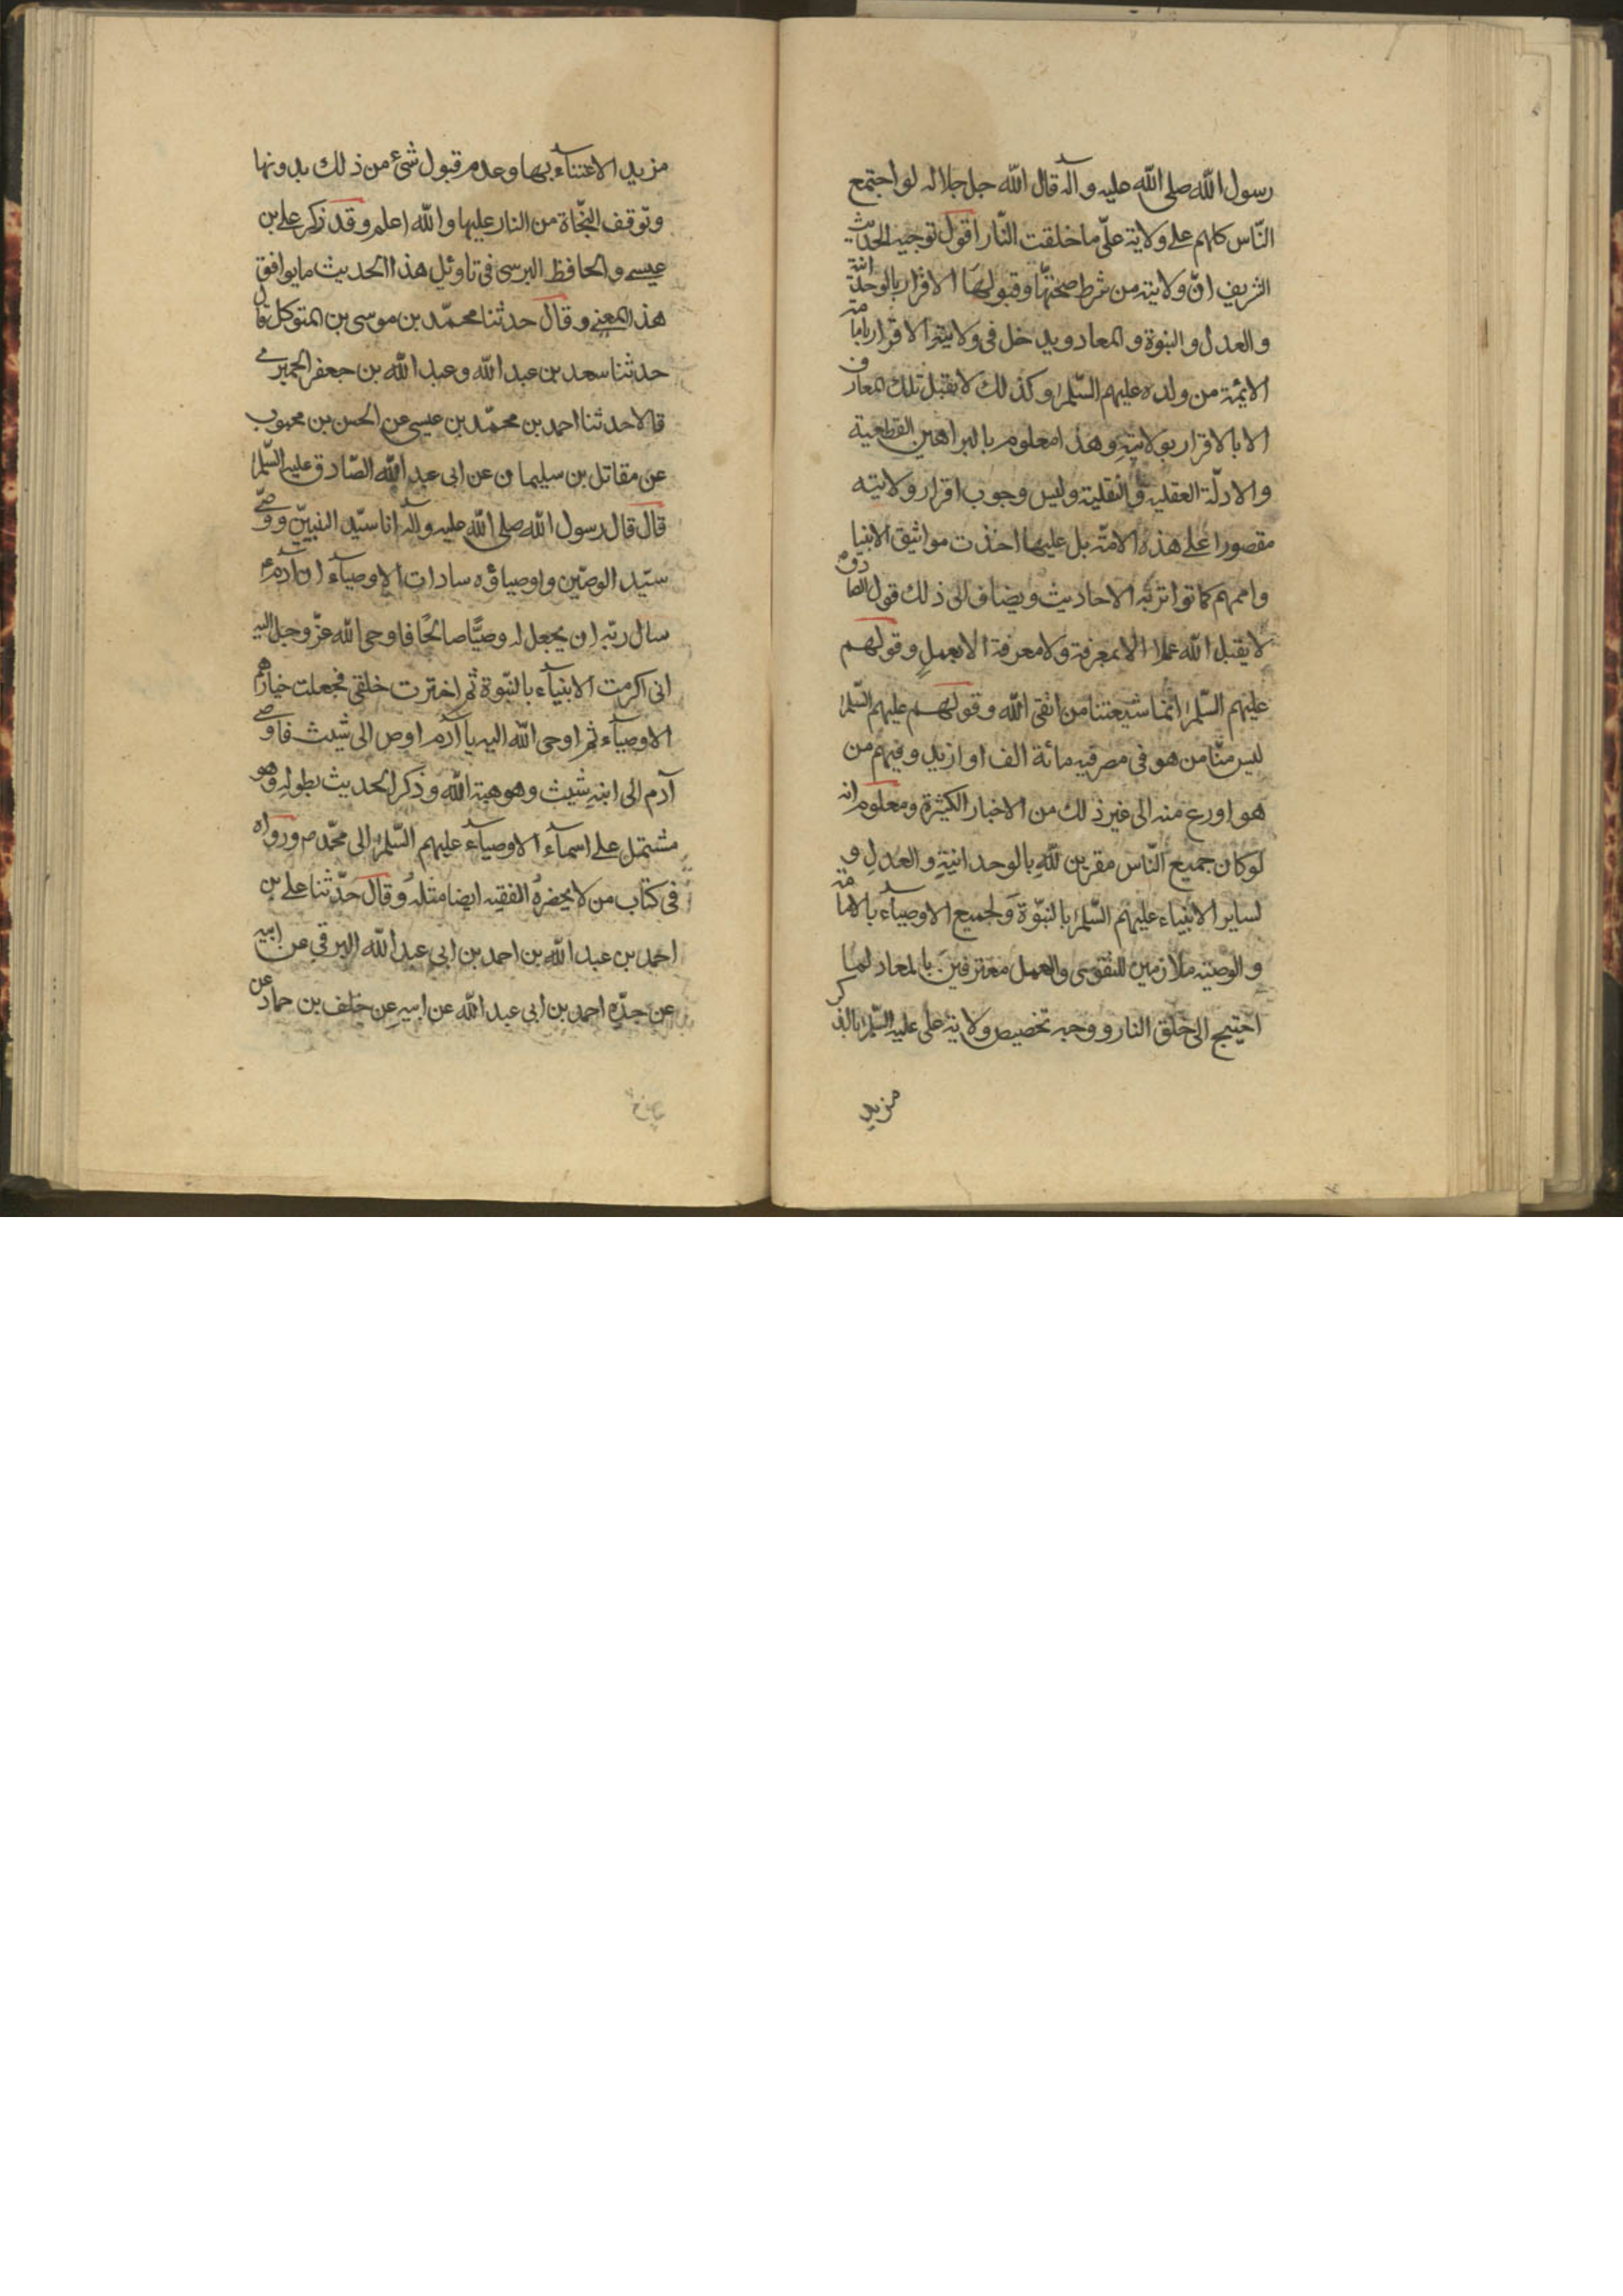 رسول الله صلى الله عليه وآله قال الله جل جلاله لو اجتمع
النّاس كلهم على ولاية علىّ ما خلقت النّار اقول توجيه الحديث
الشريف انّ ولايته من شرط صحّتها وقبولها الاقرار بالوحدانية
والعدل والنبوة والمعاد ويدخل فى ولايته الاقرار بامامة
الايمّة من ولده عليهم السّلم وكذلك لا يقبل تلك المعارف
الا بالاقرار بولايته وهذا معلوم بالبراهين القطعية
والادلّة العقلية والنقلية وليس وجوب اقرار ولايته
مقصورا على هذه الامّة بل عليها اخذت مواثيق الانبيا
واممهم كما تواترت به الاحاديث ويضاف الى ذلك قول الصادق ع
لا يقبل الله عملا الا بمعرفة ولا معرفة الا بعمل وقولهم
عليهم السّلم انّما شيعتنا من اتقى الله وقولهم عليهم السّلم
ليس منّا من هو فى مصر فيه مائة الف او ازيد وفيهم من
هو اورع منه الى غير ذلك من الاخبار الكثيرة ومعلوم انه
لو كان جميع النّاس مقرين لله بالوحدانية والعدل و
لساير الانبياء عليهم السّلم بالنبوّة ولجميع الاوصيآء بالامامة
والوصيّه ملازمين للتقوى والعمل معترفين بالمعاد لما
احتيج الى خلق النار ووجه تخصيص ولاية على عليه السّلم بالذكر
مزيد
مزيد الاعتنآء بها وعدم قبول شئ من ذلك بدونها
وتوقف النجّاة من النار عليها والله اعلم وقد ذكر على بن
عيسى والحافظ البرسى فى تاويل هذا الحديث ما يوافق
هذا المعنى وقال حدثنا محمّد بن موسى بن المتوكل قال
حدثنا سعد بن عبد الله وعبد الله بن جعفر الحميرى
قالا حدثنا احمد بن محمّد بن عيسى عن الحسن بن محبوب
عن مقاتل بن سليمان عن ابى عبد الله الصّادق عليه السّلم
قال قال رسول الله صلى الله عليه وآله انا سيّد النبيّين ووصيّى
سيّد الوصيّين واوصياؤه سادات الاوصيآء ان آدم ع
سال ربّه ان يجعل له وصيًّا صالحًا فاوحى الله عزّ وجل اليه
انى اكرمت الانبيآء بالنبّوة ثم اخترت خلقى فجعلت خيارهم
الاوصيآء ثم اوحى الله اليه يا آدم اوص الى شيث فاوصى
آدم الى ابنه شيث وهو هبة الله وذكر الحديث بطوله وهو
مشتمل على اسمآء الاوصيآء عليهم السّلم الى محمّد ص ورواه
فى كتاب من لا يحضره الفقيه ايضا مثله وقال حدّثنا على بن
احمد بن عبد الله بن احمد بن ابى عبد الله البرقى عن ابيه
عن جدّه احمد بن ابى عبد الله عن ابيه عن خلف بن حماد عن